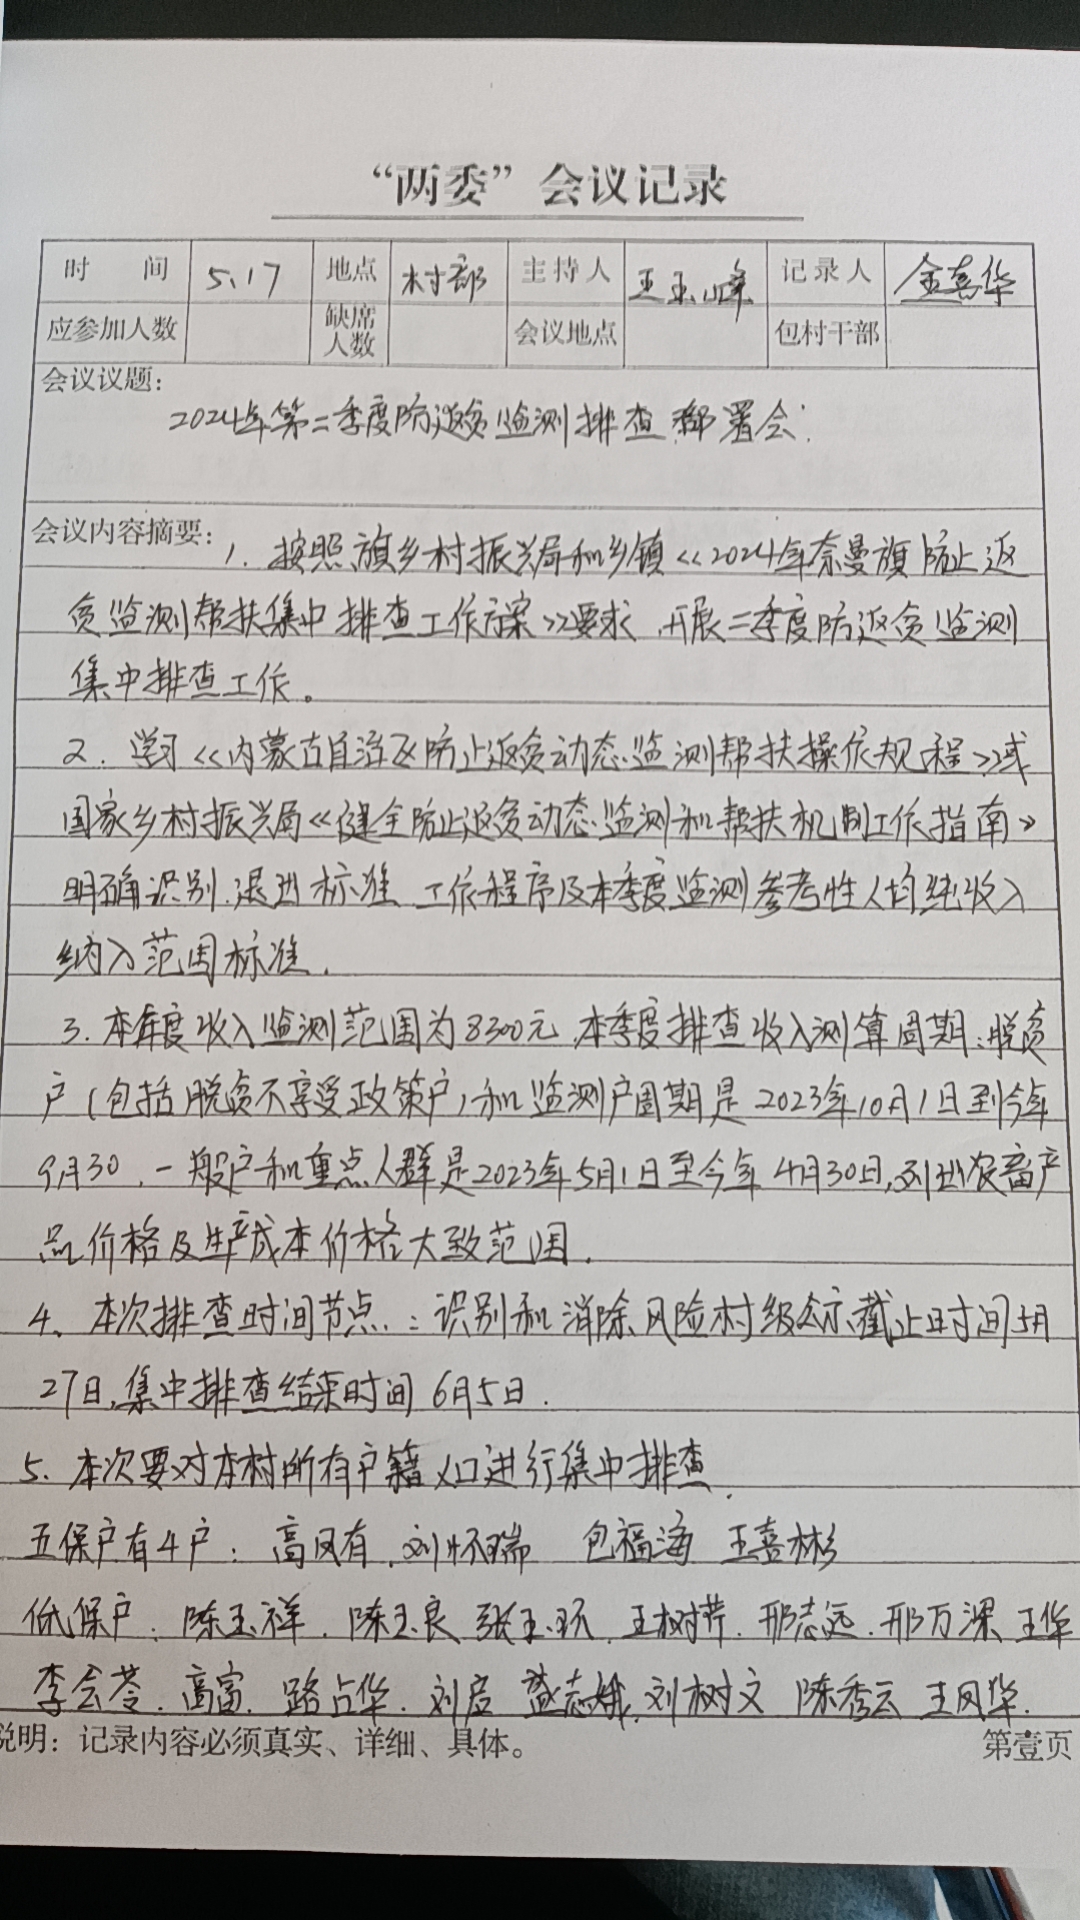 “两委”会议记录
时 间 5.17 地点 村部 主持人 王玉峰 记录人 金喜华
应参加人数 缺席人数 会议地点 包村干部
会议议题：
2024年第二季度防返贫监测排查部署会.
会议内容摘要：1、按照旗乡村振兴局和乡镇《2024年奈曼旗防止返
贫监测帮扶集中排查工作方案》要求 开展二季度防返贫监测
集中排查工作。
2. 学习《内蒙古自治区防止返贫动态监测帮扶操作规程》或
国家乡村振兴局《健全防止返贫动态监测和帮扶机制工作指南》
明确识别.退出标准 工作程序及本季度监测参考性人均纯收入
纳入范围标准.
3. 本年度收入监测范围为8300元 本季度排查收入测算周期：脱贫
户（包括脱贫不享受政策户）和监测户周期是2023年10月1日到今年
9月30.一般户和重点人群是2023年5月1日至今年4月30日,列出农畜产
品价格及生产成本价格大致范围.
4、本次排查时间节点：识别和消除风险村级公示截止时间5月
27日,集中排查结束时间6月5日.
5、本次要对本村所有户籍人口进行集中排查.
五保户有4户：高凤有.刘怀瑞 包福海 王喜彬
低保户：陈玉祥.陈玉良 张玉 王树芹.邢志远.邢万深 王华
李会苓.高富.路占华.刘 盛志娥.刘树文 陈秀云 王凤华.
说明：记录内容必须真实、详细、具体。 第壹页